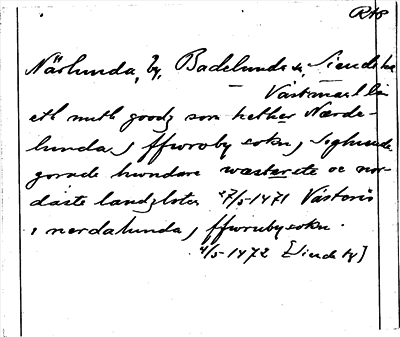 RAP
Närlunda, by, Badelunda sn, Siende hd
Västmanl. län
ett mitt goodz som hether Nærde-
lunda j ffwroby sokn j Seghende-
gorade hundare wæsterste oc nor-
daste landzloten 27/5 1471 Västerås
i nærdalunda j ffwrnby sokn.
4/5 1472 [Siende hd]